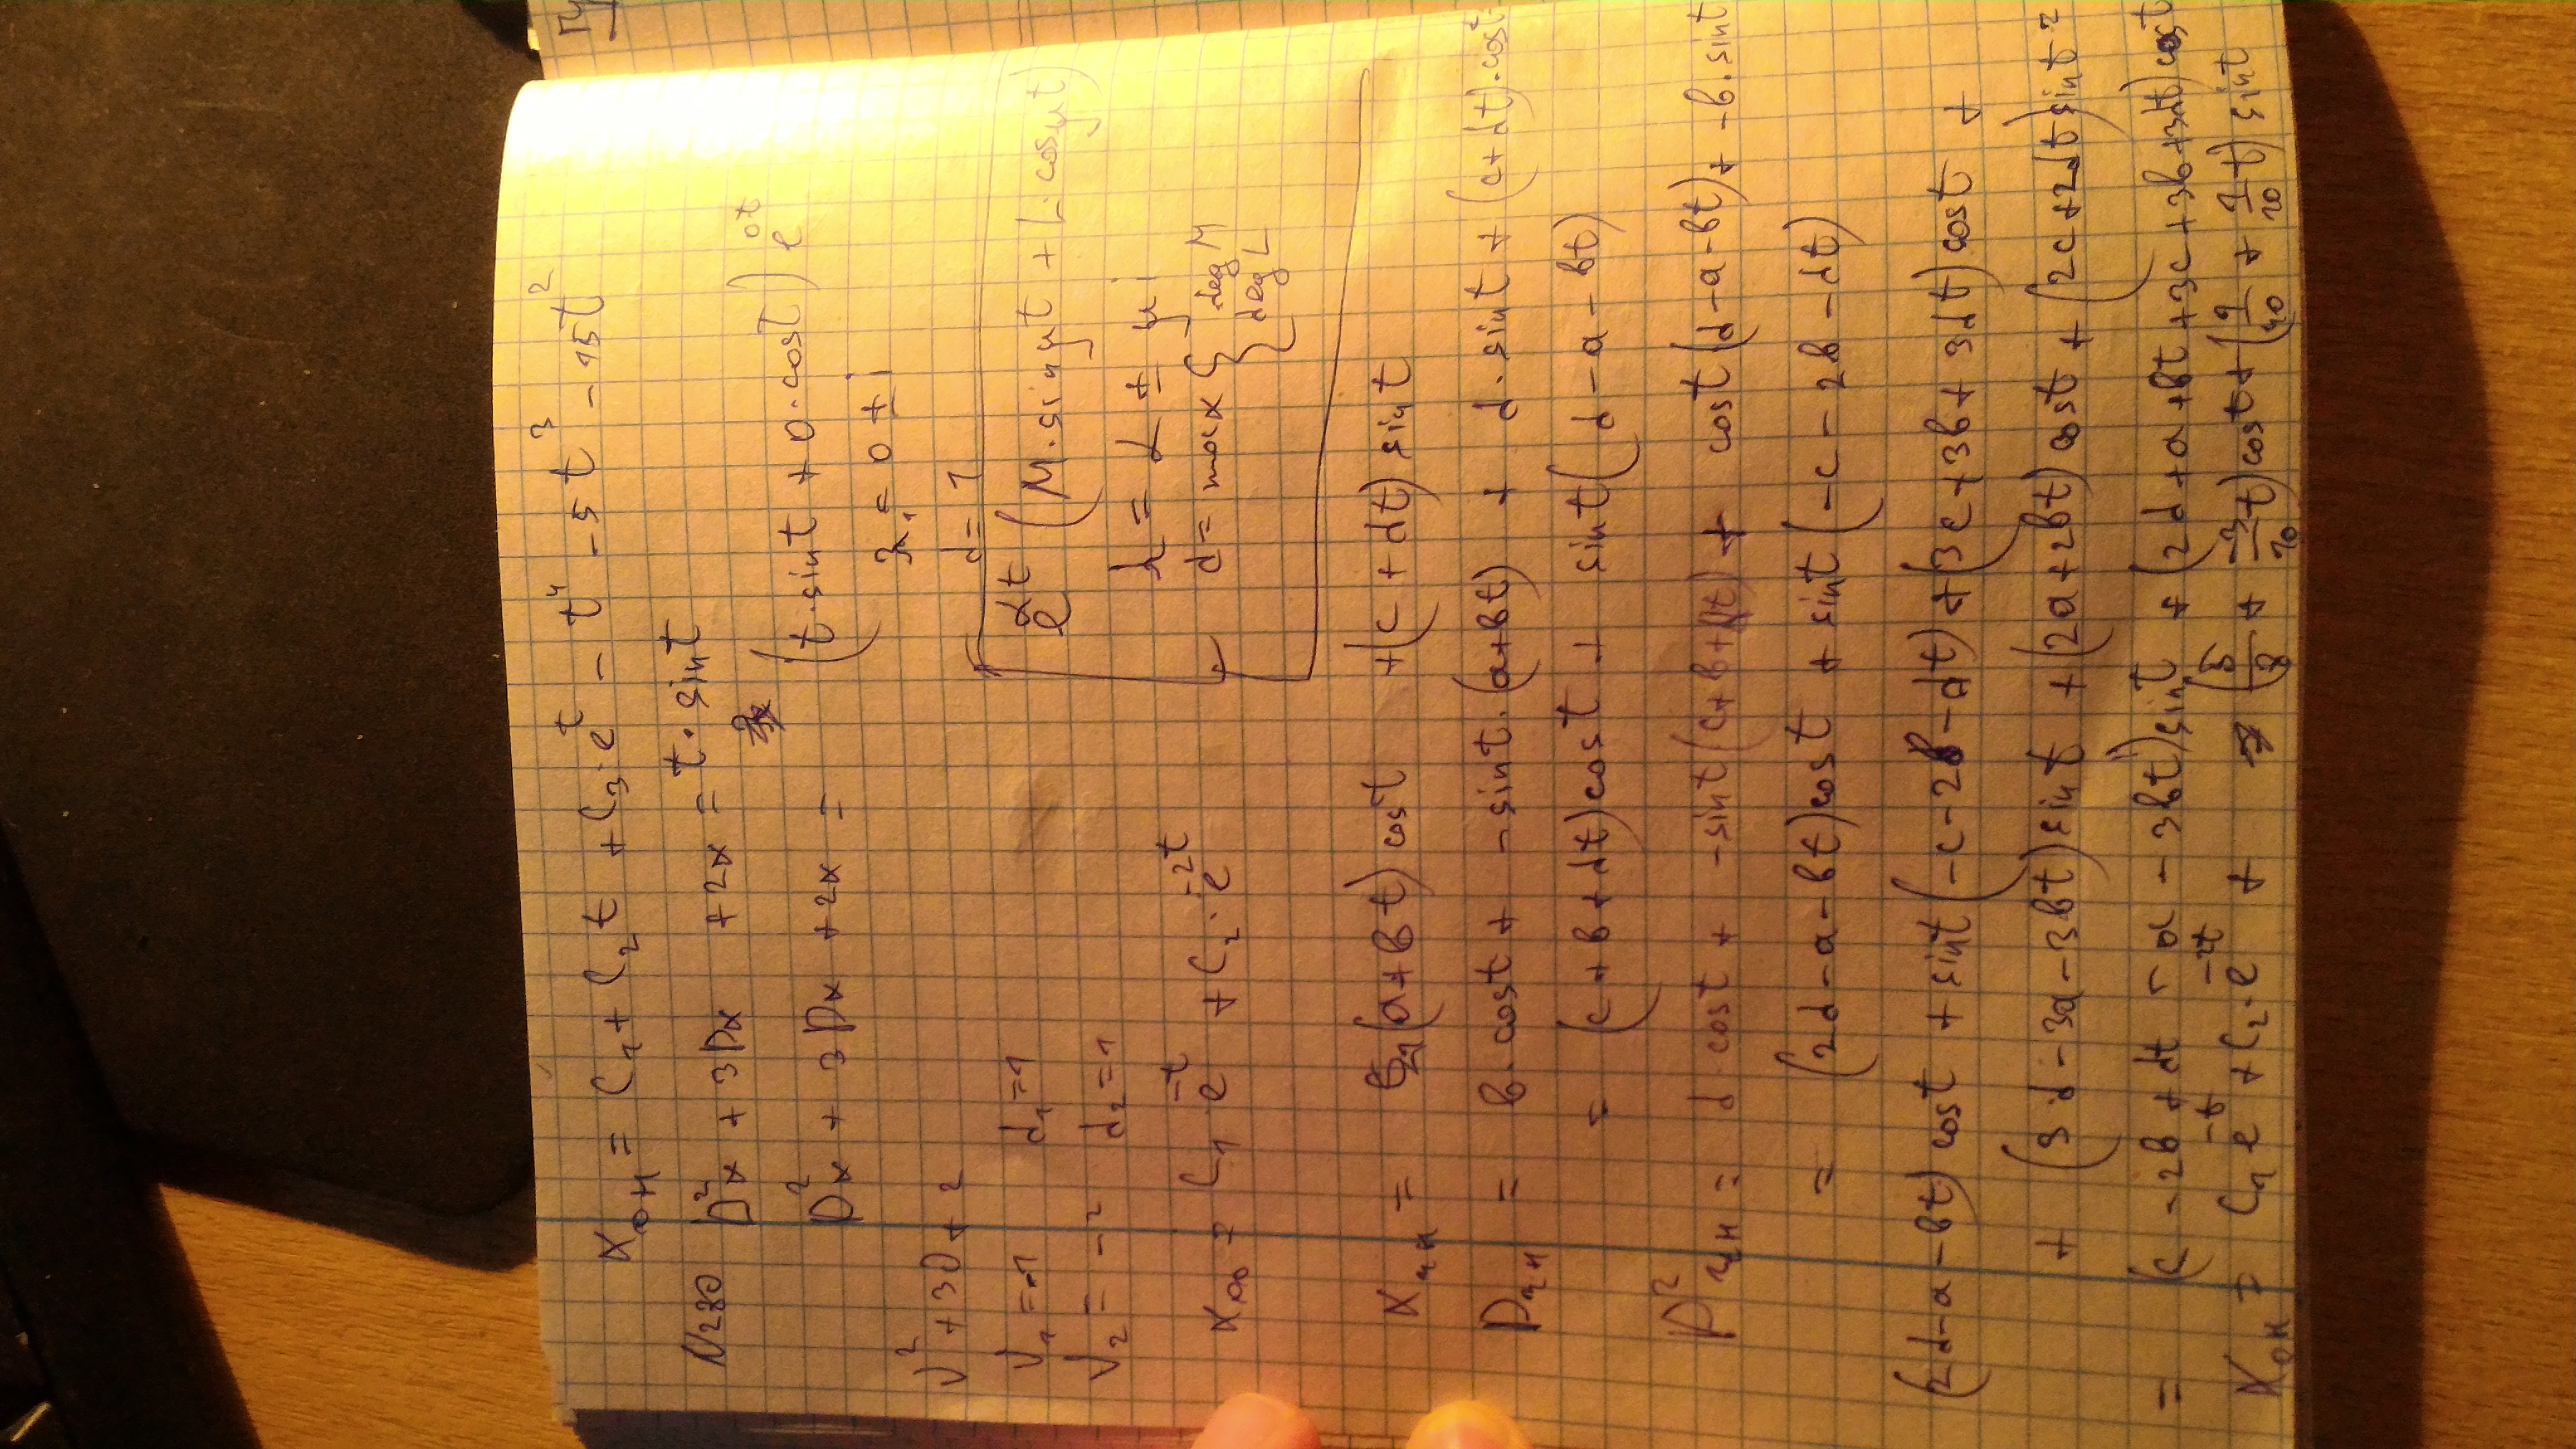 x_он = C₁ + C₂t + C₃·e^t − t⁴ − 5t³ − 15t²
N280 D²x + 3Dx + 2x = t·sint
D²x + 3Dx + 2x = (t·sint + 0·cost) e^{0t}
λ₁ = 0 ± i
d = 1
ν² + 3ν + 2
ν₁ = −1 d₁ = 1
ν₂ = −2 d₂ = 1
x_оо = C₁·e^{−t} + C₂·e^{−2t}
e^{αt} (M·sin μt + L·cos μt)
λ = α ± μi
d = max { deg M
deg L
x_чн = (a+bt) cost + (c+dt) sint
D_чн = b·cost + −sint·(a+bt) + d·sint + (c+dt)·cost
= (c+b+dt)cost + sint(d−a−bt)
D²_чн = d cost + −sint(c+b+dt) + cost(d−a−bt) + −b·sint
= (2d−a−bt)cost + sint(−c−2b−dt)
(2d−a−bt) cost + sint(−c−2b−dt) + (3c+3b+3dt) cost +
+ (3d−3a−3bt) sint + (2a+2bt) cost + (2c+2dt) sint =
= (c −2b + dt − a − 3bt) sint + (2d+a+bt+3c+3b+3dt) cost
x_он = C₁e^{−t} + C₂·e^{−2t} + (5/8 + −3/10 t) cost + (9/40 + 1/10 t) sint